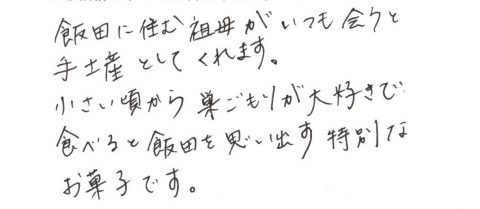 飯田に住む祖母がいつも会うと
手土産としてくれます。
小さい頃から巣ごもりが大好きで
食べると飯田を思い出す特別な
お菓子です。